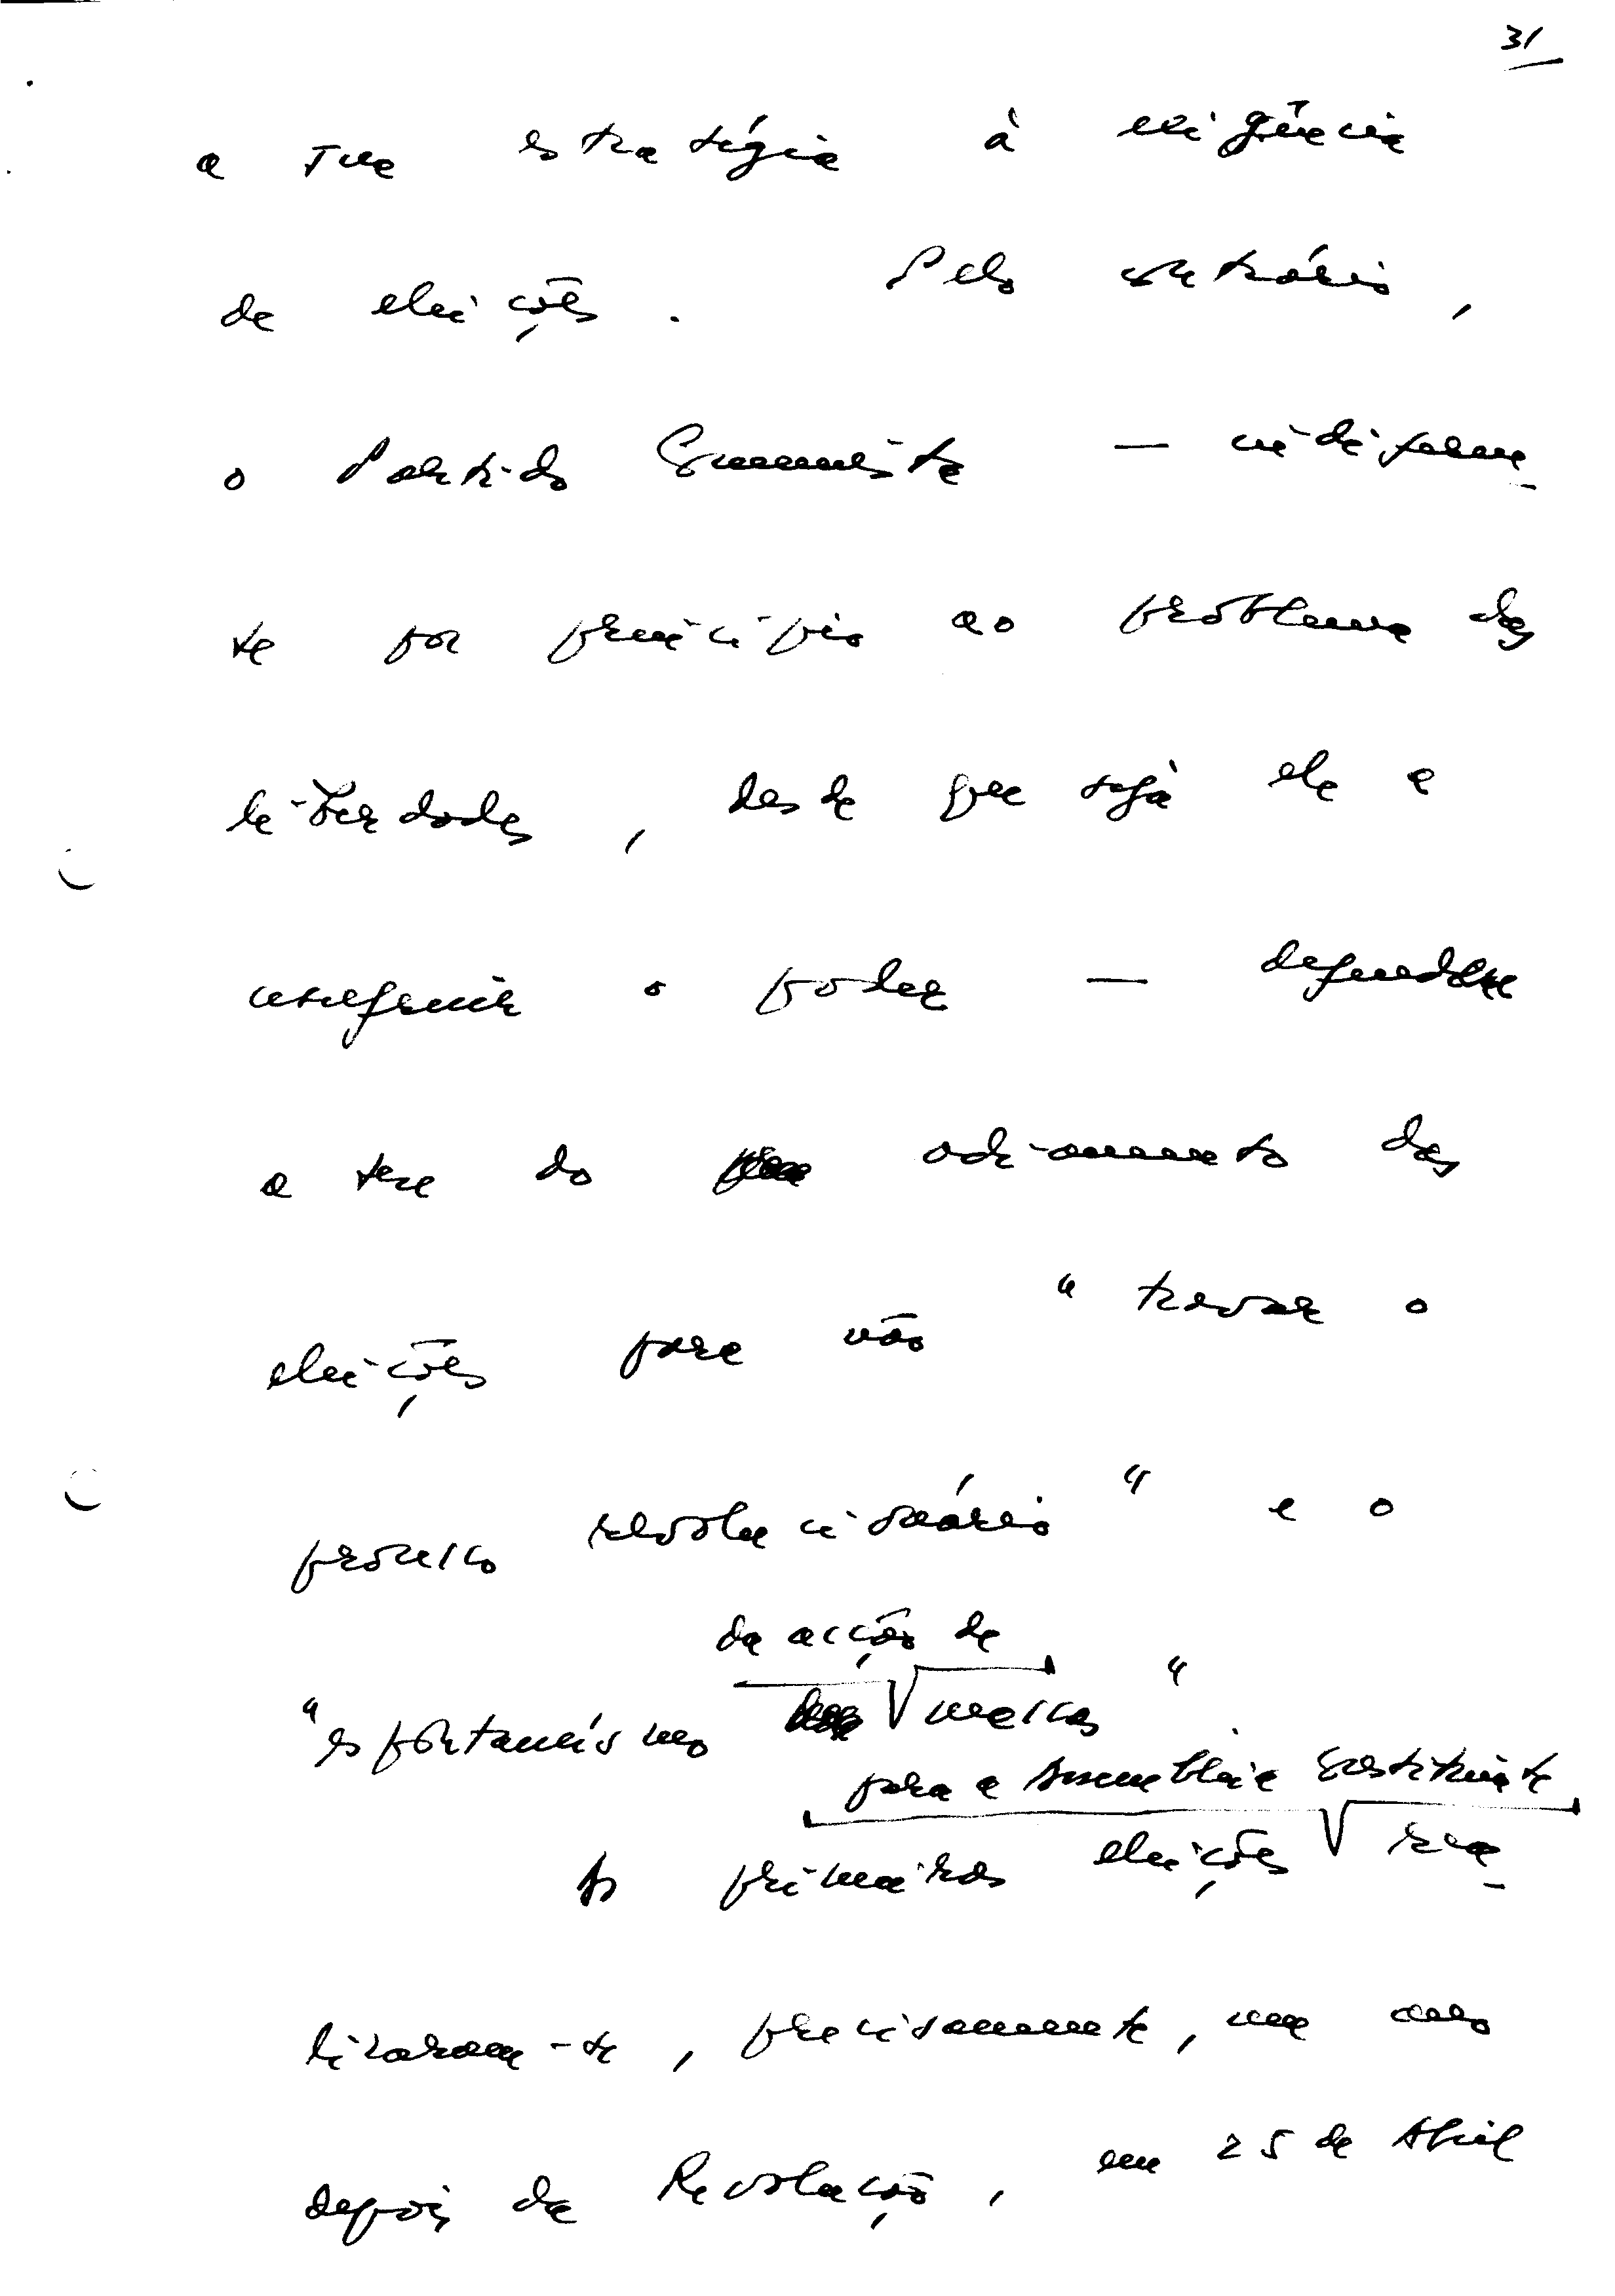 31
a sua estratégia à exigência
de eleições. Pelo contrário,
o Partido Comunista — indiferen-
te por princípio ao problema das
liberdades, desde que seja ele a
usufruir o poder — defendeu
a tese do adiamento das
eleições para não "travar o
processo revolucionário" e o
da acção de
"espontaneísmo massas"
para a Assembleia Constituinte
As primeiras eleições rea-
lizaram-se, precisamente, um ano
depois da Revolução, em 25 de Abril